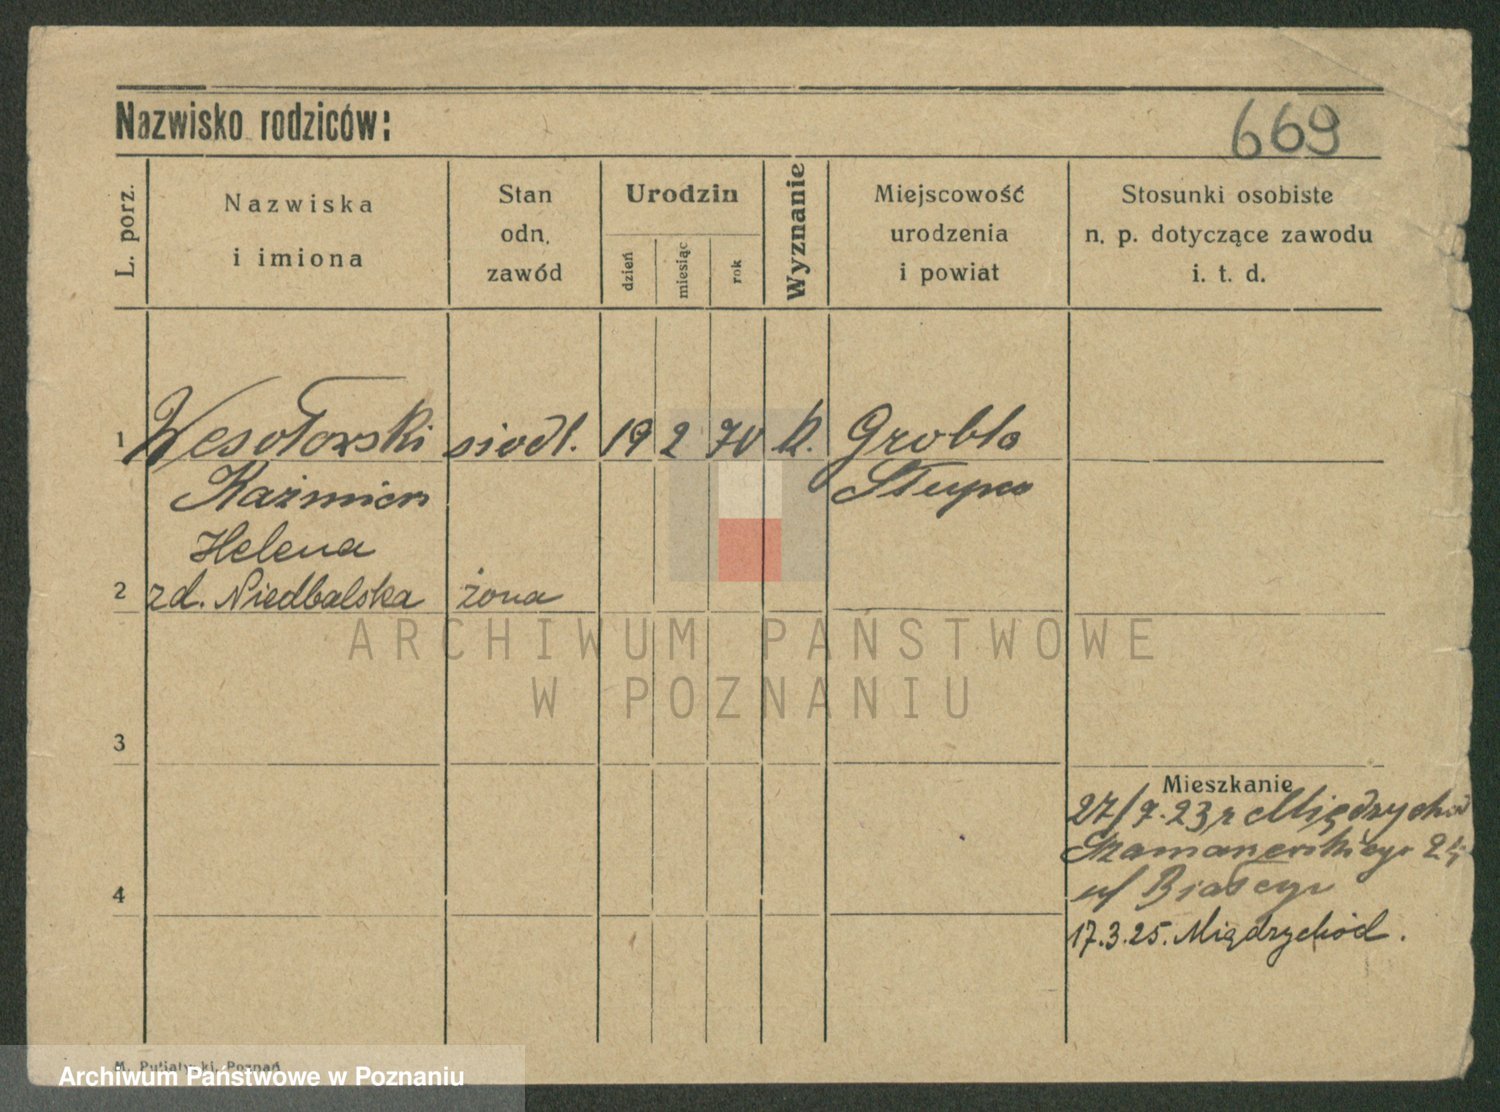 669
Nazwisko rodziców:
L. porz.
Nazwiska
i imiona
Stan
odn.
zawód
Urodzin
dzień
miesiąc
rok
Wyznanie
Miejscowość
urodzenia
i powiat
Stosunki osobiste
n. p. dotyczące zawodu
i. t. d.
1 Wesołowski siodl. 19 2 70 k. Grobla
Kaźmierz Słupca
Helena
2 zd. Niedbalska żona
ARCHIWUM PAŃSTWOWE
W POZNANIU
3
Mieszkanie
27/9.23 r Międzychód
24
4
u/ Białego
17.3.25. Międzychód.
M. Putiatycki, Poznań
Archiwum Państwowe w Poznaniu